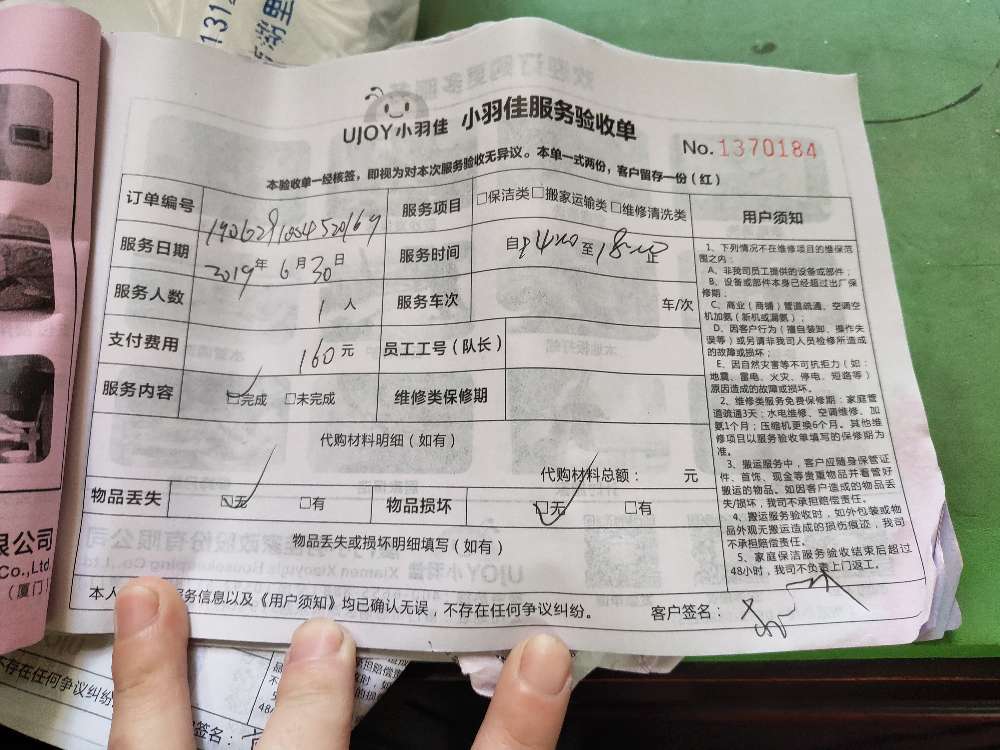 UJOY小羽佳 小羽佳服务验收单
No. 1370184
本验收单一经核签，即视为对本次服务验收无异议。本单一式两份，客户留存一份（红）
订单编号
服务项目 □保洁类 □搬家运输类 □维修清洗类
服务日期 2019年 6月30日
服务时间 自 至 止
服务人数 1 人
服务车次 车/次
支付费用 160元
员工工号（队长）
服务内容 □完成 □未完成
维修类保修期
代购材料明细（如有）
代购材料总额： 元
物品丢失 □无 □有
物品损坏 □无 □有
物品丢失或损坏明细填写（如有）
用户须知
1、下列情况不在维修项目的维保范
围之内：
A、非我司员工提供的设备或部件；
B、设备或部件本身已经超过出厂保
修期；
C、商业（商铺）管道疏通、空调空
机加氨（新机或漏氨）；
D、因客户行为（擅自装卸、操作失
误等）或另请非我司人员检修所造成
的故障或损坏；
E、因自然灾害等不可抗拒力（如：
地震、雷电、火灾、停电、短路等）
原因造成的故障或损坏。
2、维修类服务免费保修期：家庭管
道疏通3天；水电维修、空调维修、加
氨1个月；压缩机更换6个月。其他维
修项目以服务验收单填写的保修期为
准。
3、搬运服务中，客户应随身保管证
件、首饰、现金等贵重物品并看管好
搬运的物品。如因客户造成的物品丢
失/损坏，我司不承担赔偿责任。
4、搬运服务验收时，如外包装或物
品外观无搬运造成的损伤痕迹，我司
不承担赔偿责任。
5、家庭保洁服务验收结束后超过
48小时，我司不负责上门返工。
本人 务信息以及《用户须知》均已确认无误，不存在任何争议纠纷。
客户签名：
限公司
Co.,Ltd
（厦门
不存在任何争议纠纷
签名：
1312